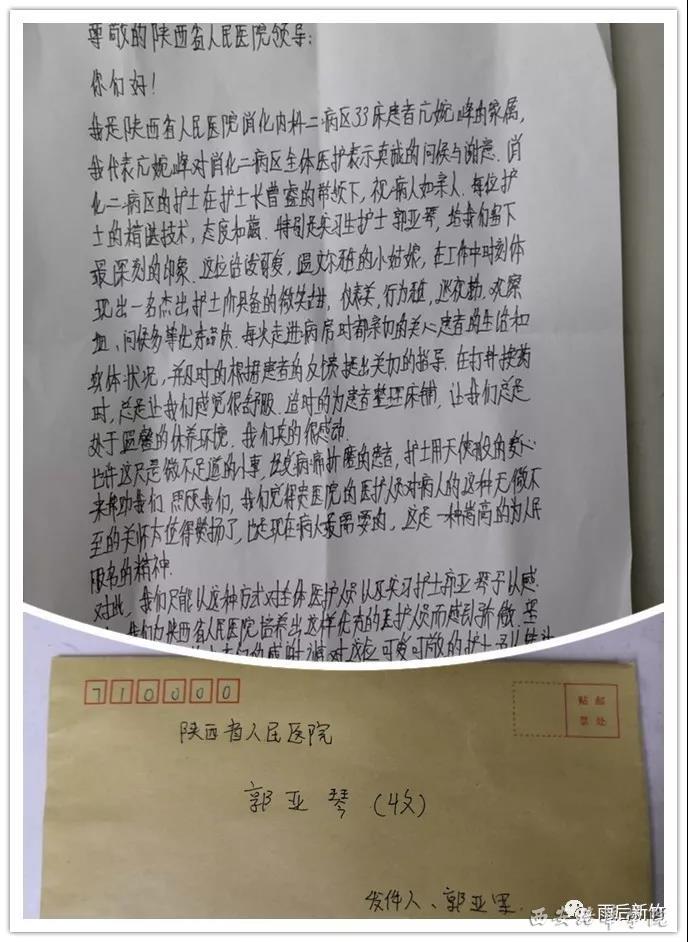 尊敬的陕西省人民医院领导:
你们好!
我是陕西省人民医院消化内科二病区33床患者亢婉峰的家属,
我代表亢婉峰对消化二病区全体医护表示真诚的问候与谢意. 消
化二病区的护士在护士长曾睿的带领下, 视病人如亲人. 每位护
士的精湛技术, 态度和蔼. 特别是实习生护士郭亚琴, 给我们留下
最深刻的印象. 这位 可爱, 温文尔雅的小姑娘, 在工作中时刻体
现出一名杰出护士所具备的微笑甜, 仪表美, 行为雅, 巡视勤. 观察
细、问候多等优秀品质. 每次走进病房时都亲切的关心患者的生活和
身体状况, 并及时的根据患者的反馈提出关切的指导. 在打针换药
时, 总是让我们感觉很舒服. 适时的为患者整理床铺, 让我们总是
处于温馨的休养环境. 我们真的很感动.
也许这只是微不足道的小事, 但受病痛折磨的患者, 护士用天使般的爱心
来帮助我们 照顾我们, 我们觉得贵医院的医护人员对病人的这种无微不
至的关怀太值得赞扬了, 也是现在病人最需要的, 这是一种高尚的为人民
服务的精神.
对此, 我们只能以这种方式对全体医护人员以及实习护士郭亚琴予以感
我们为陕西省人民医院培养出这样优秀的医护人员而感到骄傲.
的感谢 请对这位可爱可敬的护士予以
710000
贴邮
票处
陕西省人民医院
郭亚琴(收)
发件人、郭亚
雨后新竹
西安培华学院